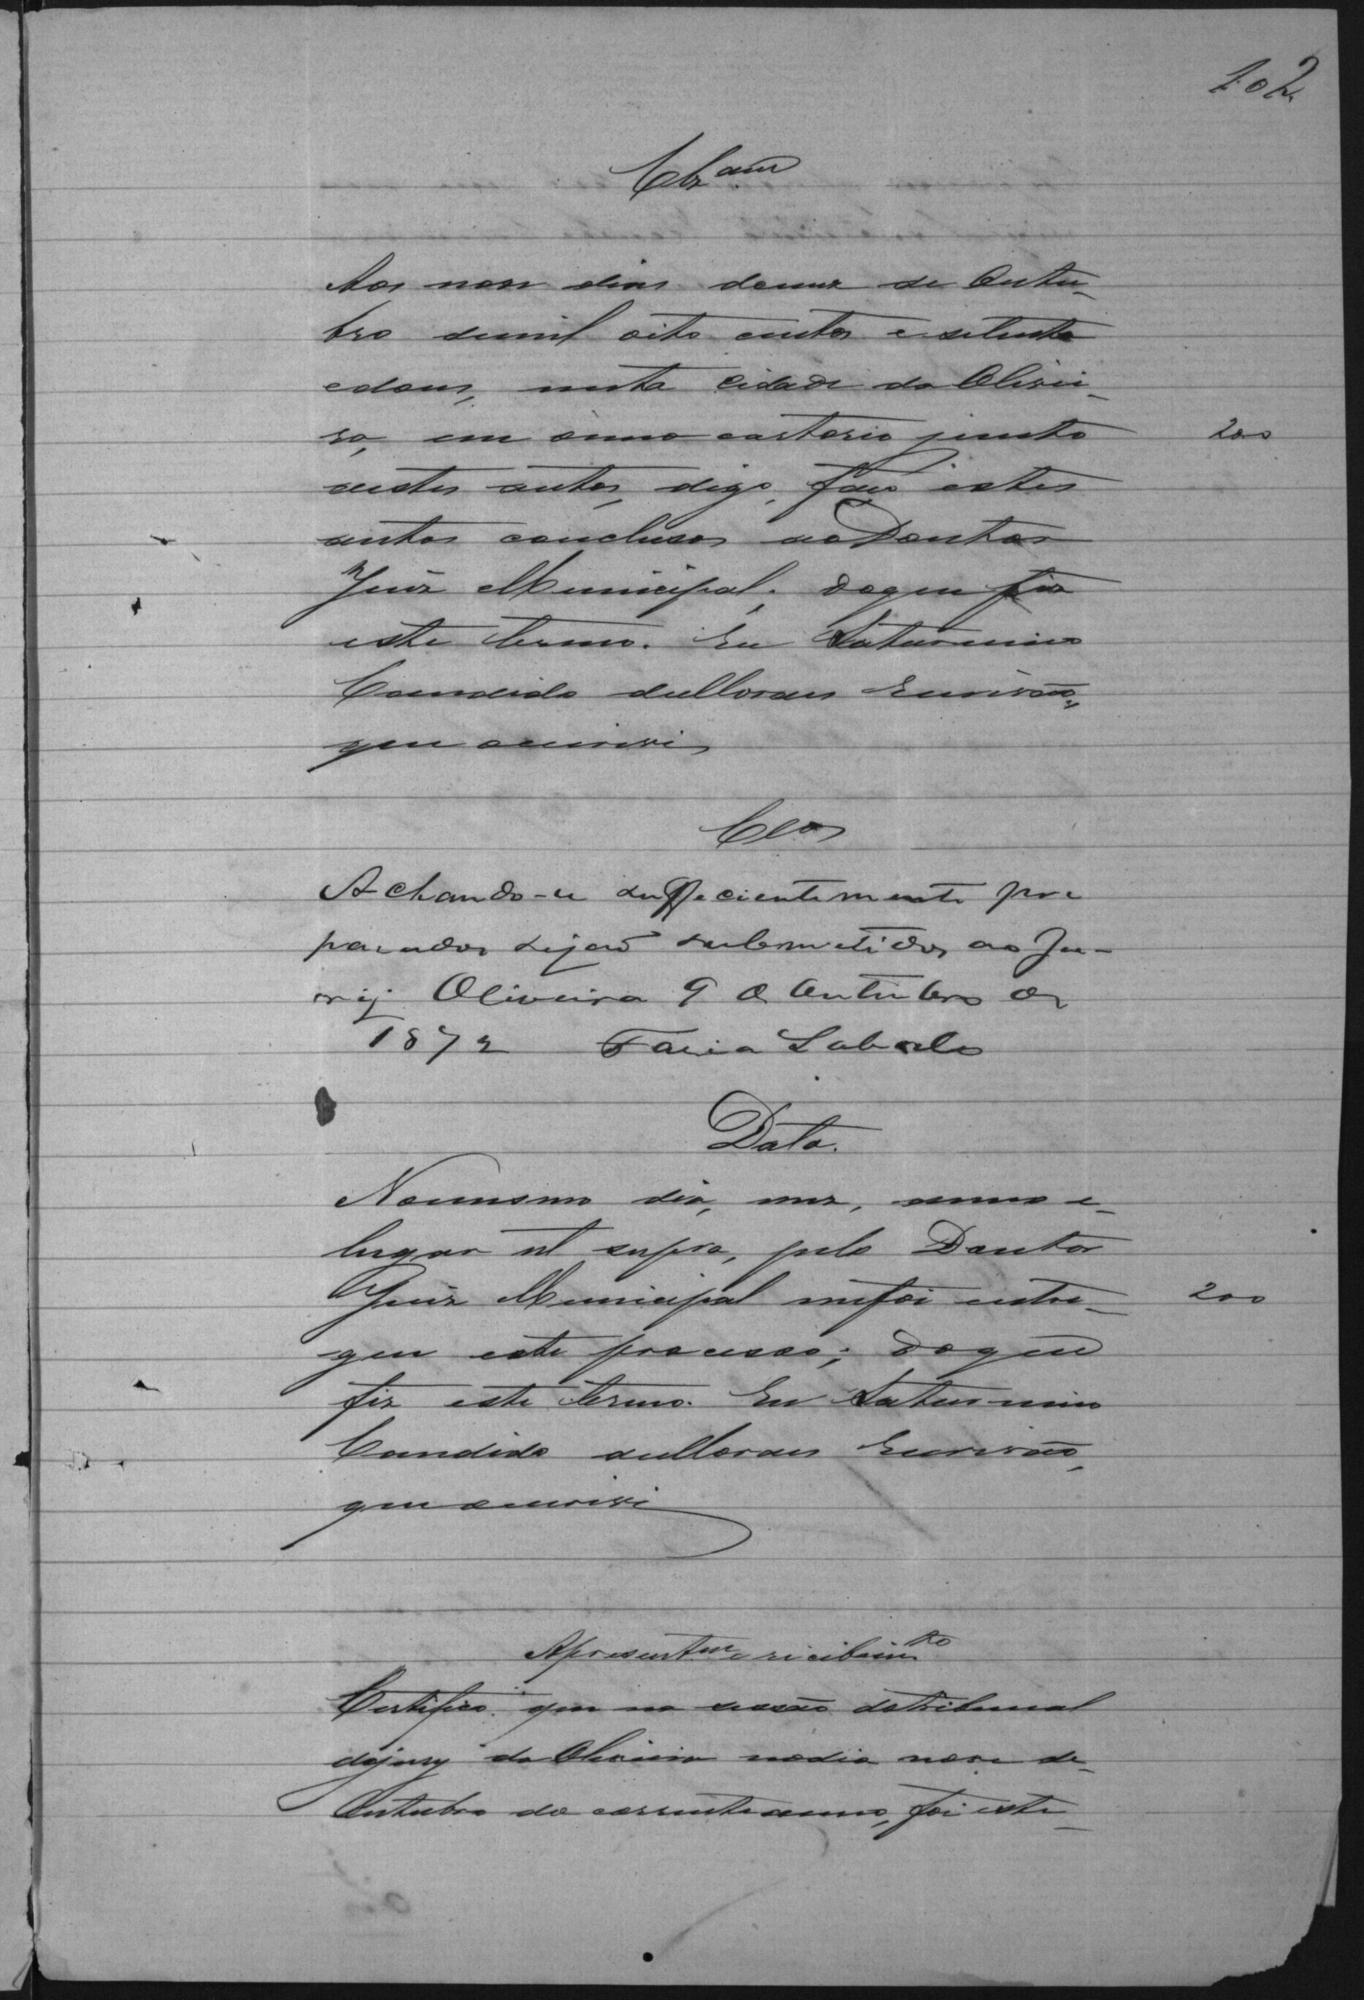 102
Clz.am
Aos nove dias domez de Outu-
bro demil oito centos e setenta
edous, nesta Cidade da Olivei-
ra, em o meo cartorio junto
200
aestes autos, digo, faço estes
autos conclusos ao Doutor
Juiz Municipal; doque fiz
este termo. Eu Saturnino
Candido deMoraes Escrivão,
que oescrevi
Clos
Achando-se sufficientemente pre
parados sejaõ submettidos ao Ju-
ry Oliveira 9 de Outubro de
1872 Faria Lobato
Data.
Nomesmo dia, mez, anno e
lugar ut supra, pelo Doutor
Juiz Municipal mefoi entre-
200
gue este processo; doque
fiz este termo. Eu Saturnino
Candido deMoraes Escrivão,
que oescrevi
Apresentam.e recebim.to
Certifico que na sessão dotribunal
dojury da Oliveira nodia nove de
Outubro do corrente anno, foi este